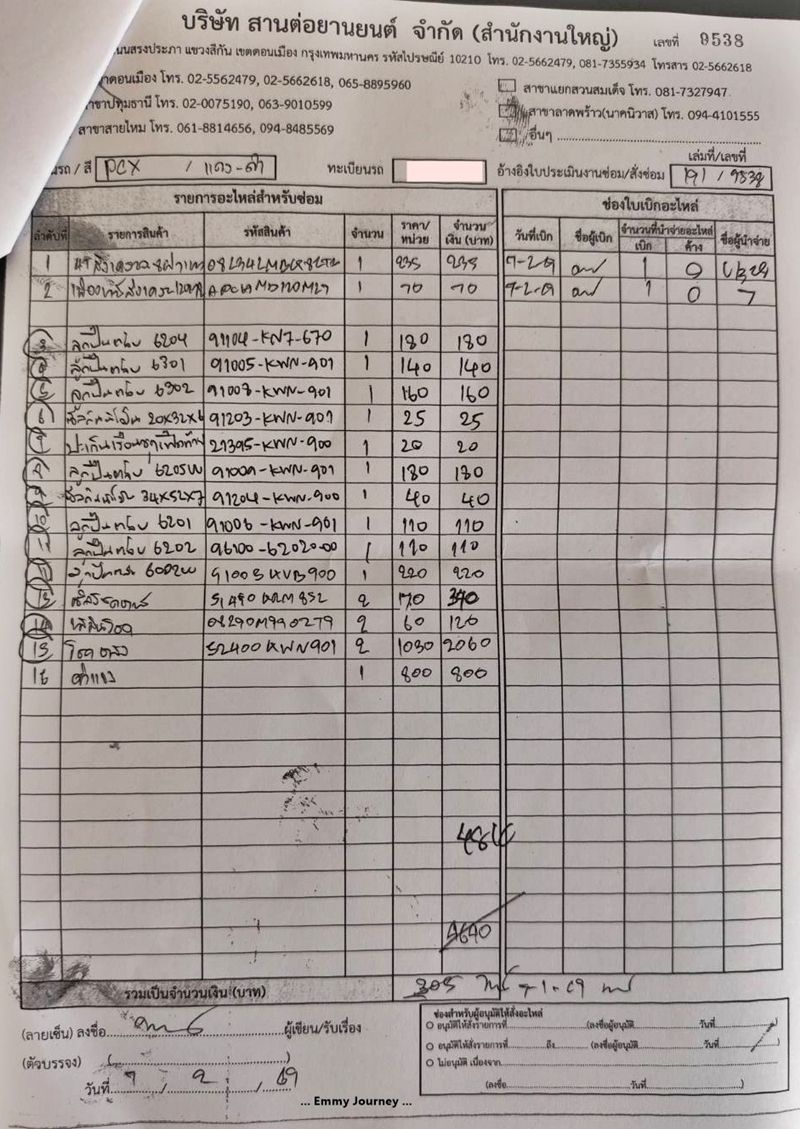 บริษัท สานต่อยานยนต์ จำกัด (สำนักงานใหญ่) เลขที่ 9538
ถนนสรงประภา แขวงสีกัน เขตดอนเมือง กรุงเทพมหานคร รหัสไปรษณีย์ 10210 โทร. 02-5662479, 081-7355934 โทรสาร 02-5662618
ดอนเมือง โทร. 02-5562479, 02-5662618, 065-8895960
สาขาแยกสวนสมเด็จ โทร. 081-7327947
สาขาปทุมธานี โทร. 02-0075190, 063-9010599
สาขาลาดพร้าว(นาคนิวาส) โทร. 094-4101555
สาขาสายไหม โทร. 061-8814656, 094-8485569
อื่นๆ
เล่มที่/เลขที่
รถ / สี PCX / แดง-ดำ ทะเบียนรถ อ้างอิงใบประเมินงานซ่อม/สั่งซ่อม 191 / 9538
รายการอะไหล่สำหรับซ่อม ช่องใบเบิกอะไหล่
ลำดับที่ รายการสินค้า รหัสสินค้า จำนวน ราคา/หน่วย จำนวนเงิน (บาท) วันที่เบิก ชื่อผู้เบิก จำนวนที่นำจ่ายอะไหล่ เบิก ค้าง ชื่อผู้นำจ่าย
1 1 235 235 7-2-69 1 0
2 1 70 70 7-2-69 1 0
3 ลูกปืนตลับ 6204 91104-KN7-670 1 180 180
ลูกปืนตลับ 6301 91005-KWN-901 1 140 140
5 ลูกปืนตลับ 6302 91008-KWN-901 1 160 160
6 20x32x6 91203-KWN-901 1 25 25
7 21395-KWN-900 1 20 20
ลูกปืนตลับ 6205W 91009-KWN-901 1 180 180
9 34x52x7 91204-KWN-900 1 40 40
10 ลูกปืนตลับ 6201 91006-KWN-901 1 110 110
11 ลูกปืนตลับ 6202 96100-62020-00 1 110 110
91005KVB900 1 220 220
13 51490KRM852 2 170 340
14 2 60 120
15 โช๊คหลัง 52400KWN901 2 1030 2060
16 ค่าแรง 1 800 800
4640
รวมเป็นจำนวนเงิน (บาท) 305
ช่องสำหรับผู้อนุมัติให้สั่งอะไหล่
(ลายเซ็น) ลงชื่อ ผู้เขียน/รับเรื่อง
อนุมัติให้สั่งรายการที่ (ลงชื่อผู้อนุมัติ วันที่ )
อนุมัติให้สั่งรายการที่ ถึง (ลงชื่อผู้อนุมัติ วันที่ )
(ตัวบรรจง) ( )
ไม่อนุมัติ เนื่องจาก
วันที่ 7 / 2 / 69
(ลงชื่อ วันที่ )
... Emmy Journey ...